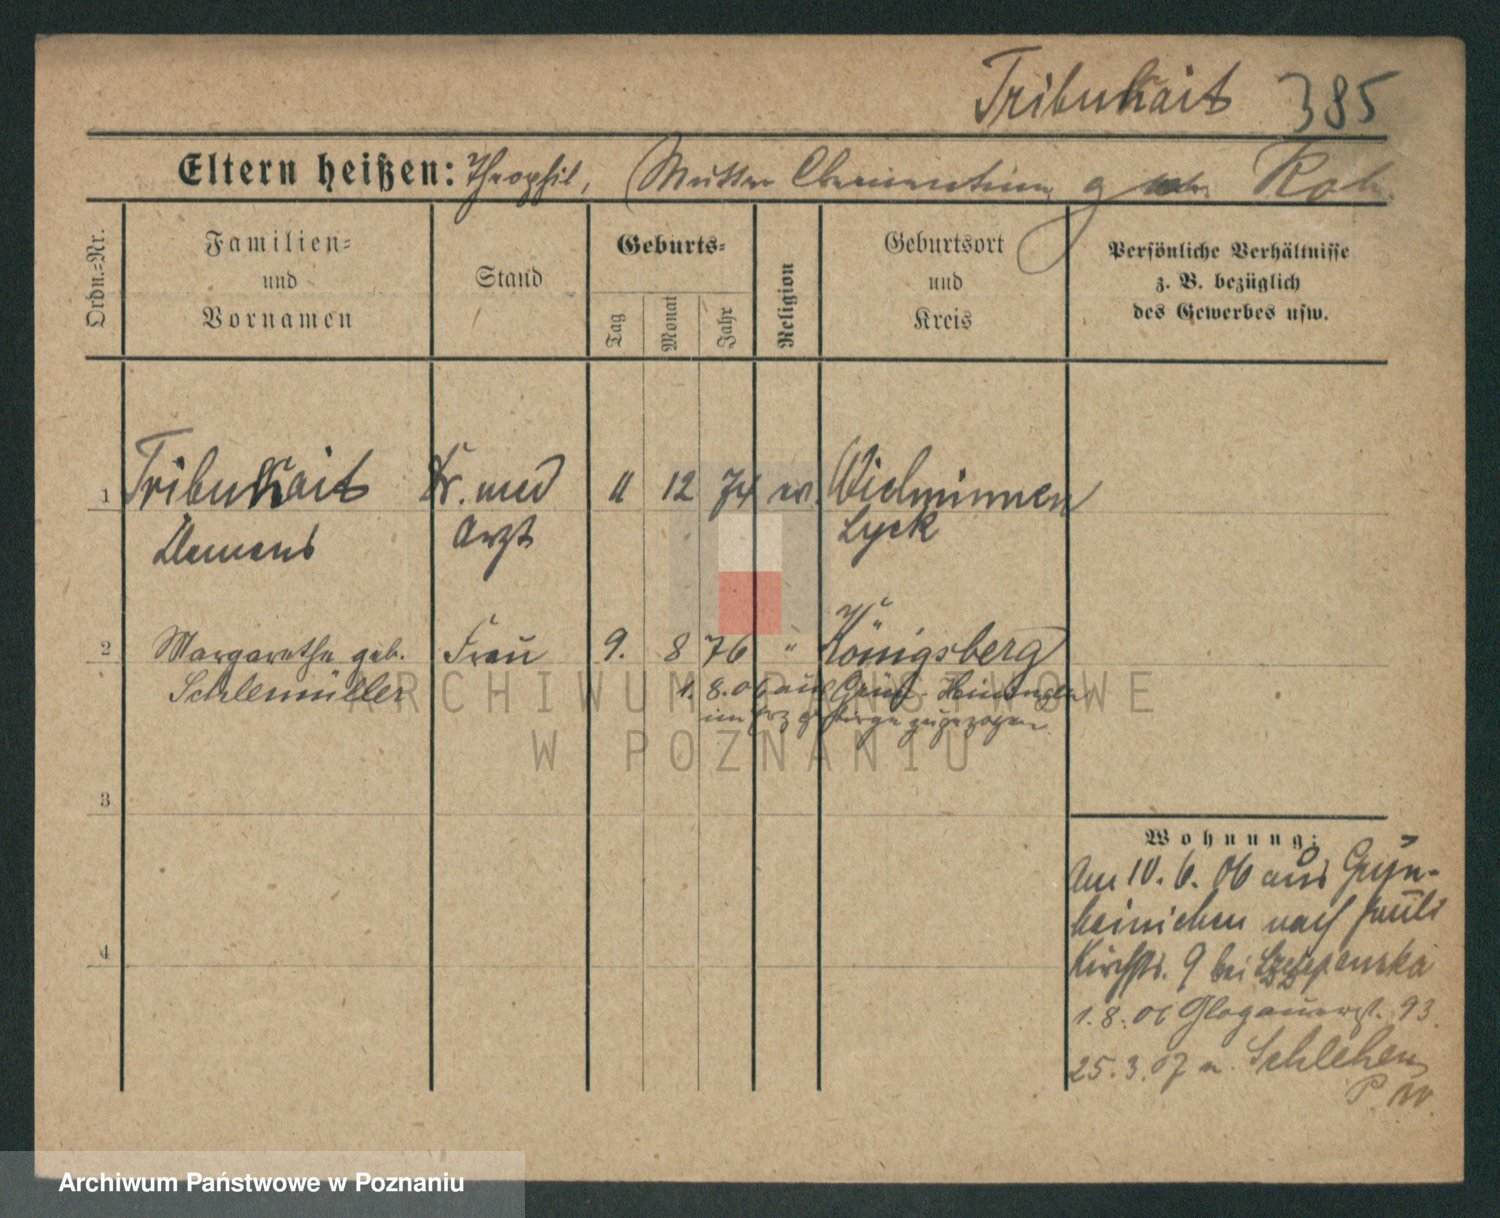 Tribukait 385
Eltern heißen: Theophil, Mutter Clementine geb. Roh
Ordn.=Nr.
Familien=
und
Vornamen
Stand
Geburts=
Tag
Monat
Jahr
Religion
Geburtsort
und
Kreis
Persönliche Verhältnisse
z. B. bezüglich
des Gewerbes usw.
1 Tribukait Dr. med 11 12 74 ev. Widminnen
Clemens Arzt Lyck
2 Margarethe geb. Frau 9. 8 76 " Königsberg
Schlemüller 1. 8. 06 aus
im Erzgebirge zugezogen
ARCHIWUM PAŃSTWOWE
W POZNANIU
3
4
Wohnung:
Am 10. 6. 06 aus Grün-
hainichen nach Pauli
Kirchstr. 9 bei
1. 8. 06 Glogauerst. 93
25. 3. 07 n. Schlehen
P. W.
Archiwum Państwowe w Poznaniu